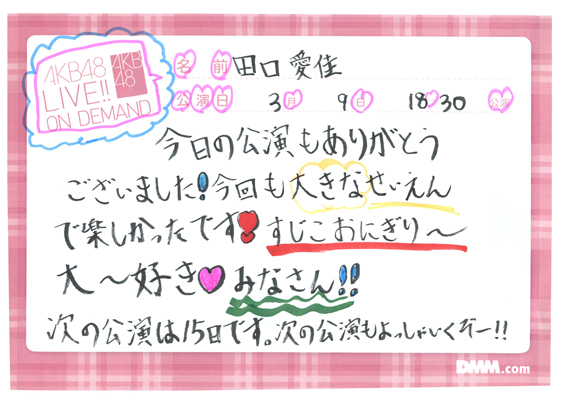 AKB48
LIVE!!
ON DEMAND
AKB
48
名前 田口愛佳
公演日 3月 9日 18:30 公演
今日の公演もありがとう
ございました!今回も大きなせいえん
で楽しかったです!すじこおにぎり〜
大〜好き♥みなさん!!
次の公演は15日です。次の公演もよっしゃいくぞー!!
DMM.com